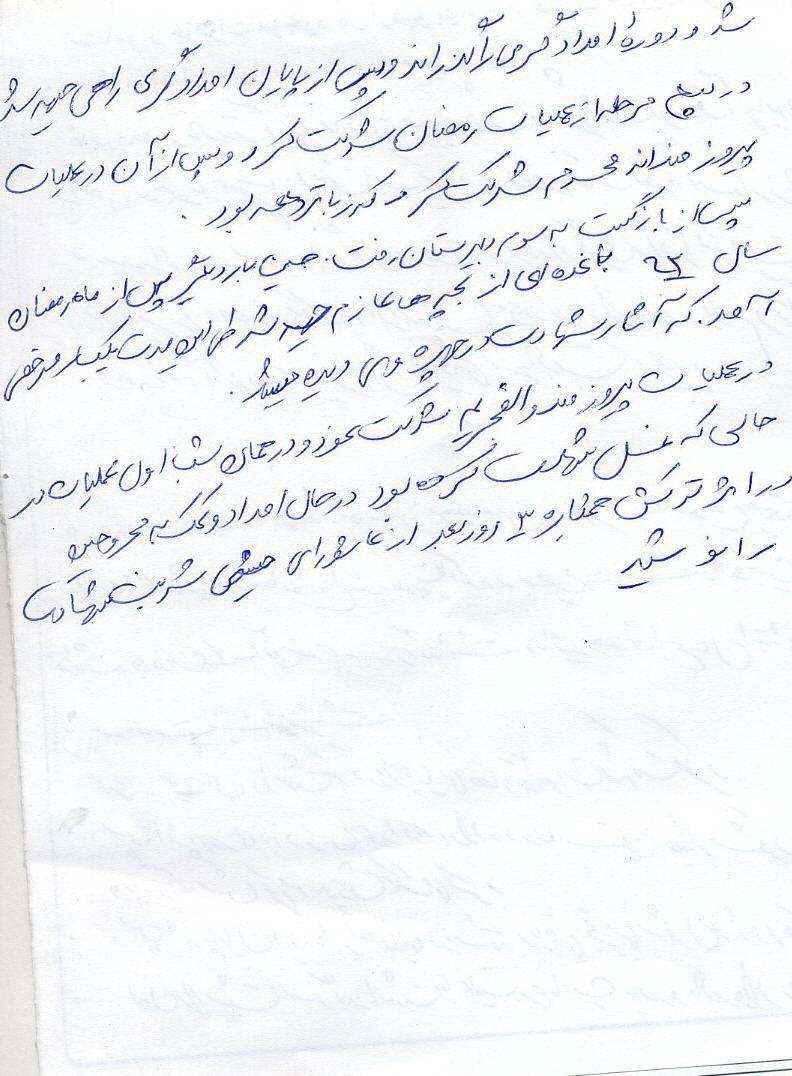 شد و دورهٔ امدادگری را گذراند و پس از پایان امدادگری راهی جبهه شد
در پنج مرحله از عملیات رمضان شرکت کرد و پس از آن در عملیات
پیروزمندانه محرم شرکت کرد که زبانزد همه بود.
پس از بازگشت به سوم دبیرستان رفت. حسین بار دیگر پس از ماه رمضان
سال ۶۲ با عده‌ای از بچه‌ها عازم جبهه شد طی این مدت یکبار مرخصی
آمد. که آثار شهادت در چهره وی دیده میشد.
در عملیات پیروزمند والفجر شرکت نمود و در همان شب اول عملیات در
حالی که غسل شهادت کرده بود در حال امداد و کمک به مجروحین
در اثر ترکش خمپاره ۳ روز بعد از عاشورای حسینی شربت شهادت
را نوشید